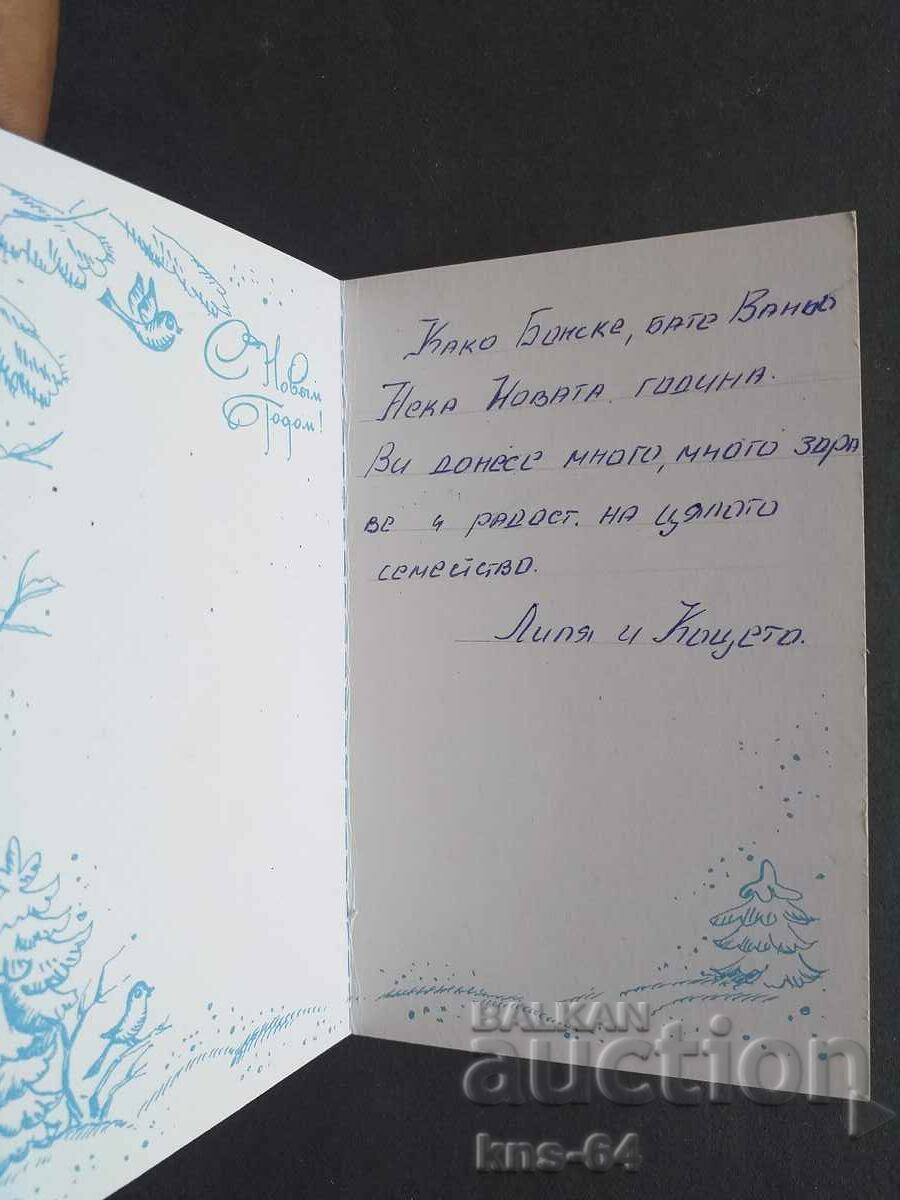 С Новым
Годом!
Како Божке, бате Ваньо
Нека Новата година.
Ви донесе много, много здра
ве и радост. на цялото
семейство.
Лиля и Коцето.
BALKAN
auction
kns-64